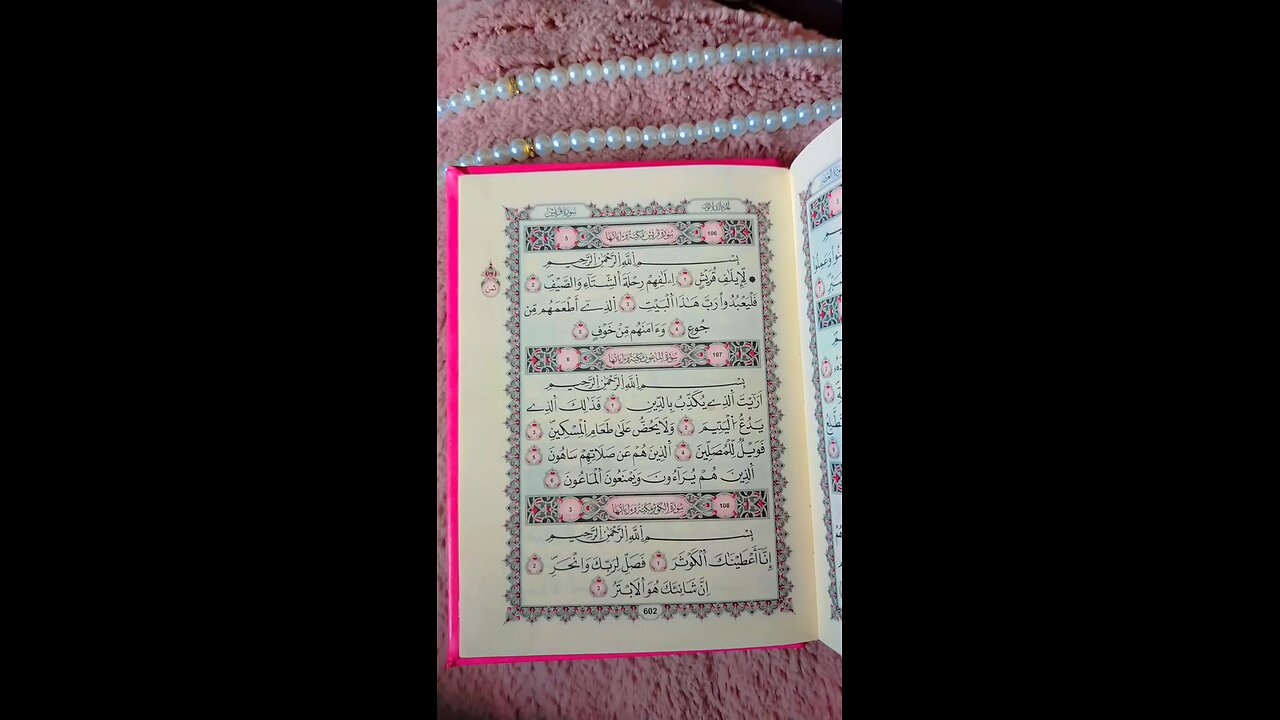 الجزء الثلاثون
سورة قريش
106 سورة قريش مكية وءاياتها 5
بِسْمِ اِ۬للَّهِ اِ۬لرَّحْمَٰنِ اِ۬لرَّحِيمِ
لِإِيلَٰفِ قُرَيْشٍ 1 اِۦلَٰفِهِمْ رِحْلَةَ اَ۬لشِّتَآءِ وَالصَّيْفِ 2
فَلْيَعْبُدُواْ رَبَّ هَٰذَا اَ۬لْبَيْتِ 3 اِ۬لذِےٓ أَطْعَمَهُم مِّن
جُوعٍ 4 وَءَامَنَهُم مِّنْ خَوْفٍ 5
ثمن
107 سورة الماعون مكية وءاياتها 6
بِسْمِ اِ۬للَّهِ اِ۬لرَّحْمَٰنِ اِ۬لرَّحِيمِ
أَرَٰيْتَ اَ۬لذِے يُكَذِّبُ بِالدِّينِ 1 فَذَٰلِكَ اَ۬لذِے
يَدُعُّ اُ۬لْيَتِيمَ 2 وَلَا يَحُضُّ عَلَىٰ طَعَامِ اِ۬لْمِسْكِينِ 3
فَوَيْلٌ لِّلْمُصَلِّينَ 4 اَ۬لذِينَ هُمْ عَن صَلَاتِهِمْ سَاهُونَ 5
اَ۬لذِينَ هُمْ يُرَآءُونَ وَيَمْنَعُونَ اَ۬لْمَاعُونَ 6
108 سورة الكوثر مكية وءاياتها 3
بِسْمِ اِ۬للَّهِ اِ۬لرَّحْمَٰنِ اِ۬لرَّحِيمِ
إِنَّآ أَعْطَيْنَٰكَ اَ۬لْكَوْثَرَ 1 فَصَلِّ لِرَبِّكَ وَانْحَرْ 2
إِنَّ شَانِئَكَ هُوَ اَ۬لَابْتَرُ 3
602